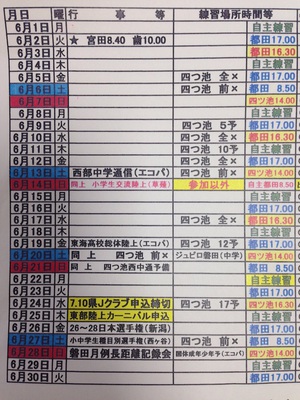 月日 曜 行 事 等 練習場所時間等
6月1日 月 自主練習
6月2日 火 ★ 宮田8.40 歯10.00 都田17.00
6月3日 水 都田16.30
6月4日 木 自主練習
6月5日 金 四つ池 全× 都田17.00
6月6日 土 四つ池 前× 都田 8.50
6月7日 日 四ツ池14.00
6月8日 月 自主練習
6月9日 火 四つ池 5予 都田17.00
6月10日 水 四つ池 全× 都田16.30
6月11日 木 四つ池 10予 自主練習
6月12日 金 四つ池 全× 都田17.00
6月13日 土 西部中学通信(エコパ) 四つ池 前× 四ツ池14.00
6月14日 日 同上 小学生交流陸上(草薙) 参加以外 自主都田8.50
6月15日 月 自主練習
6月16日 火 都田17.00
6月17日 水 四つ池 全× 都田16.30
6月18日 木 自主練習
6月19日 金 東海高校総体陸上(エコパ) 四つ池 12予 都田17.00
6月20日 土 同上 四つ池 前× ジュビロ磐田(中学) 四ツ池14.00
6月21日 日 同上 四つ池西中通予備 都田 8.50
6月22日 月 自主練習
6月23日 火 都田17.00
6月24日 水 7.10県Jクラブ申込締切 四つ池 17予 都田16.30
6月25日 木 東部陸上カーニバル申込 自主練習
6月26日 金 26~28日本選手権(新潟) 都田17.00
6月27日 土 小中学生種目別選手権(西ヶ谷) 都田 8.50
6月28日 日 磐田月例長距離記録会 国体成年少年予(エコパ) 四ツ池14.00
6月29日 月 自主練習
6月30日 火 都田17.00